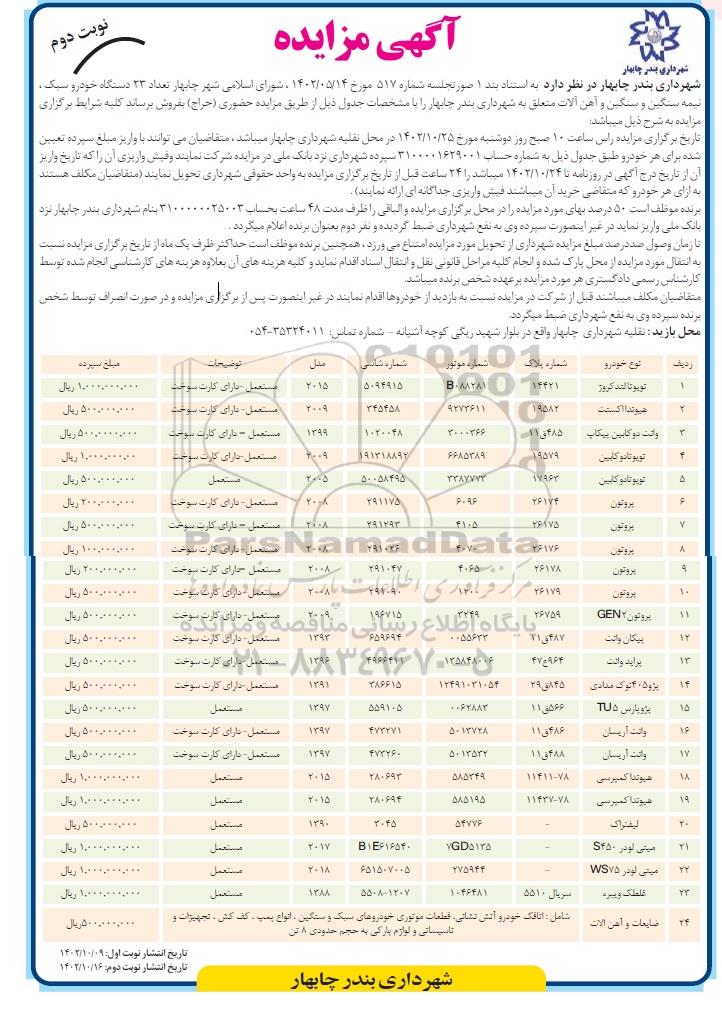 نوبت دوم
آگهی مزایده
شهرداری بندر چابهار
شهرداری بندر چابهار در نظر دارد به استناد بند ۱ صورتجلسه شماره ۵۱۷ مورخ ۱۴۰۲/۰۵/۱۴ ، شورای اسلامی شهر چابهار تعداد ۲۳ دستگاه خودرو سبک ،
نیمه سنگین و سنگین و آهن آلات متعلق به شهرداری بندر چابهار را با مشخصات جدول ذیل از طریق مزایده حضوری (حراج) بفروش برساند کلیه شرایط برگزاری
مزایده به شرح ذیل میباشد:
تاریخ برگزاری مزایده راس ساعت ۱۰ صبح روز دوشنبه مورخ ۱۴۰۲/۱۰/۲۵ در محل نقلیه شهرداری چابهار میباشد ، متقاضیان می توانند با واریز مبلغ سپرده تعیین
شده برای هر خودرو طبق جدول ذیل به شماره حساب ۳۱۰۰۰۰۱۶۲۹۰۰۱ سپرده شهرداری نزد بانک ملی در مزایده شرکت نمایند وفیش واریزی آن را که تاریخ واریز
آن از تاریخ درج آگهی در روزنامه تا ۱۴۰۲/۱۰/۲۴ میباشد را ۲۴ ساعت قبل از تاریخ برگزاری مزایده به واحد حقوقی شهرداری تحویل نمایند (متقاضیان مکلف هستند
به ازای هر خودرو که متقاضی خرید آن میباشند فیش واریزی جداگانه ای ارائه نمایند) .
برنده موظف است ۵۰ درصد بهای مورد مزایده را در محل برگزاری مزایده و الباقی را ظرف مدت ۴۸ ساعت بحساب ۳۱۰۰۰۰۰۰۲۵۰۰۳ بنام شهرداری بندر چابهار نزد
بانک ملی واریز نماید در غیر اینصورت سپرده وی به نفع شهرداری ضبط گردیده و نفر دوم بعنوان برنده اعلام میگردد .
تا زمان وصول صددرصد مبلغ مزایده شهرداری از تحویل مورد مزایده امتناع می ورزد ، همچنین برنده موظف است حداکثر ظرف یک ماه از تاریخ برگزاری مزایده نسبت
به انتقال مورد مزایده از محل پارک شده و انجام کلیه مراحل قانونی نقل و انتقال اسناد اقدام نماید و کلیه هزینه های آن بعلاوه هزینه های کارشناسی انجام شده توسط
کارشناس رسمی دادگستری هر مورد مزایده برعهده شخص برنده میباشد.
متقاضیان مکلف میباشند قبل از شرکت در مزایده نسبت به بازدید از خودروها اقدام نمایند در غیر اینصورت پس از برگزاری مزایده و در صورت انصراف توسط شخص
برنده سپرده وی به نفع شهرداری ضبط میگردد.
محل بازدید : نقلیه شهرداری چابهار واقع در بلوار شهید ریگی کوچه آشیانه - شماره تماس: ۳۵۳۲۴۰۱۱-۰۵۴
ردیف نوع خودرو شماره پلاک شماره موتور شماره شاسی مدل توضیحات مبلغ سپرده
۱ تویوتالندکروژ ۱۴۴۲۱ B۰۸۸۲۸۱ ۵۰۹۴۹۱۵ ۲۰۱۵ مستعمل-دارای کارت سوخت ۱.۰۰۰.۰۰۰.۰۰۰ ریال
۲ هیوندااکسنت ۱۹۵۸۲ ۹۲۷۳۶۱۱ ۳۴۵۴۵۸ ۲۰۰۹ مستعمل-دارای کارت سوخت ۵۰۰.۰۰۰.۰۰۰ ریال
۳ وانت دوکابین پیکاپ ۴۸۵ق۱۱ ۳۰۰۰۳۶۶ ۱۰۲۰۰۴۸ ۱۳۹۹ مستعمل - دارای کارت سوخت ۵۰۰.۰۰۰۰.۰۰۰ ریال
۴ تویوتادوکابین ۱۹۵۷۹ ۶۶۸۵۳۸۹ ۱۹۱۳۱۸۸۹۲ ۲۰۰۹ مستعمل-دارای کارت سوخت ۱.۰۰۰.۰۰۰.۰۰۰ ریال
۵ تویوتادوکابین ۱۷۹۶۳ ۳۳۸۷۷۷۳ ۵۰۰۵۸۴۹۵ ۲۰۰۵ مستعمل ۵۰۰.۰۰۰.۰۰۰ ریال
۶ پروتون ۲۶۱۷۴ ۶۰۹۶ ۲۹۱۱۷۵ ۲۰۰۸ مستعمل-دارای کارت سوخت ۲۰۰.۰۰۰.۰۰۰ ریال
۷ پروتون ۲۶۱۷۵ ۴۱۰۵ ۲۹۱۲۹۳ ۲۰۰۸ مستعمل - دارای کارت سوخت ۵۰۰.۰۰۰.۰۰۰ ریال
۸ پروتون ۲۶۱۷۶ ۴۰۷۰ ۲۹۱۰۲۶ ۲۰۰۸ مستعمل- دارای کارت سوخت ۱۰۰.۰۰۰.۰۰۰ ریال
۹ پروتون ۲۶۱۷۸ ۴۰۶۵ ۲۹۱۰۴۷ ۲۰۰۸ مستعمل -دارای کارت سوخت ۲۰۰.۰۰۰.۰۰۰ ریال
۱۰ پروتون ۲۶۱۷۹ ۱۲۰۰ ۲۹۱۰۹۰ ۲۰۰۸ مستعمل-دارای کارت سوخت ۵۰۰.۰۰۰.۰۰۰ ریال
۱۱ پروتون GEN۲ ۲۶۷۵۹ ۳۲۴۹ ۱۹۶۷۱۵ ۲۰۰۹ مستعمل-دارای کارت سوخت ۵۰۰.۰۰۰.۰۰۰ ریال
۱۲ پیکان وانت ۴۸۷ق۱۱ ۰۰۵۵۶۳۳ ۶۵۹۶۹۴ ۱۳۹۳ مستعمل-دارای کارت سوخت ۵۰۰.۰۰۰.۰۰۰ ریال
۱۳ پراید وانت ۹۶۴ج۴۷ ۱۳۵۸۴۸۰۰۶ ۴۹۶۶۴۱۱ ۱۳۹۶ مستعمل-دارای کارت سوخت ۵۰۰.۰۰۰.۰۰۰ ریال
۱۴ پژو۴۰۵نوک مدادی ۸۴۵ق۲۹ ۱۲۴۹۱۰۳۱۰۵۴ ۳۸۶۶۱۵ ۱۳۹۱ مستعمل-دارای کارت سوخت ۵۰۰.۰۰۰.۰۰۰ ریال
۱۵ پژوپارس TU۵ ۵۶۶ق۱۱ ۰۰۶۲۸۸۳ ۵۵۹۱۰۵ ۱۳۹۷ مستعمل ۵۰۰.۰۰۰.۰۰۰ ریال
۱۶ وانت آریسان ۴۸۶ق۱۱ ۵۰۱۳۷۲۸ ۴۷۳۲۷۱ ۱۳۹۷ مستعمل-دارای کارت سوخت ۵۰۰.۰۰۰.۰۰۰ ریال
۱۷ وانت آریسان ۴۸۸ق۱۱ ۵۰۱۳۵۳۲ ۴۷۳۲۶۰ ۱۳۹۷ مستعمل-دارای کارت سوخت ۵۰۰.۰۰۰.۰۰۰ ریال
۱۸ هیوندا کمپرسی ۱۱۴۱۱-۷۸ ۵۸۵۳۴۹ ۲۸۰۶۹۳ ۲۰۱۵ مستعمل ۱.۰۰۰.۰۰۰.۰۰۰ ریال
۱۹ هیوندا کمپرسی ۱۱۴۳۷-۷۸ ۵۸۵۱۹۵ ۲۸۰۶۹۴ ۲۰۱۵ مستعمل ۱.۰۰۰.۰۰۰.۰۰۰ ریال
۲۰ لیفتراک - ۵۴۷۷۶ ۳۰۴۵ ۱۳۹۰ مستعمل ۵۰۰.۰۰۰.۰۰۰ ریال
۲۱ مینی لودر S۴۵۰ - ۷GD۵۱۳۵ B۱E۶۱۶۵۴۰ ۲۰۱۷ مستعمل ۱.۰۰۰.۰۰۰.۰۰۰ ریال
۲۲ مینی لودر WS۷۵ - ۲۷۵۹۴۴ ۶۵۱۵۰۷۰۰۵ ۲۰۱۸ مستعمل ۱.۰۰۰.۰۰۰.۰۰۰ ریال
۲۳ غلطک ویبره سریال ۵۵۱۰ ۱۰۴۶۴۸۱ ۵۵۰۸-۱۲۰۷ ۱۳۸۸ مستعمل ۱.۰۰۰.۰۰۰.۰۰۰ ریال
۲۴ ضایعات و آهن آلات شامل : اتاقک خودرو آتش نشانی، قطعات موتوری خودروهای سبک و سنگین ، انواع پمپ ، کف کش ، تجهیزات و ۵۰۰.۰۰۰.۰۰۰ریال
تاسیساتی و لوازم پارکی به حجم حدودی ۸ تن
تاریخ انتشار نوبت اول: ۱۴۰۲/۱۰/۰۹
تاریخ انتشار نوبت دوم: ۱۴۰۲/۱۰/۱۶
شهرداری بندر چابهار
ParsNamadData
مرکز فرآوری اطلاعات پارس نماد داده ها
پایگاه اطلاع رسانی مناقصه و مزایده
۰۲۱-۸۸۳۴۹۶۷۰-۵